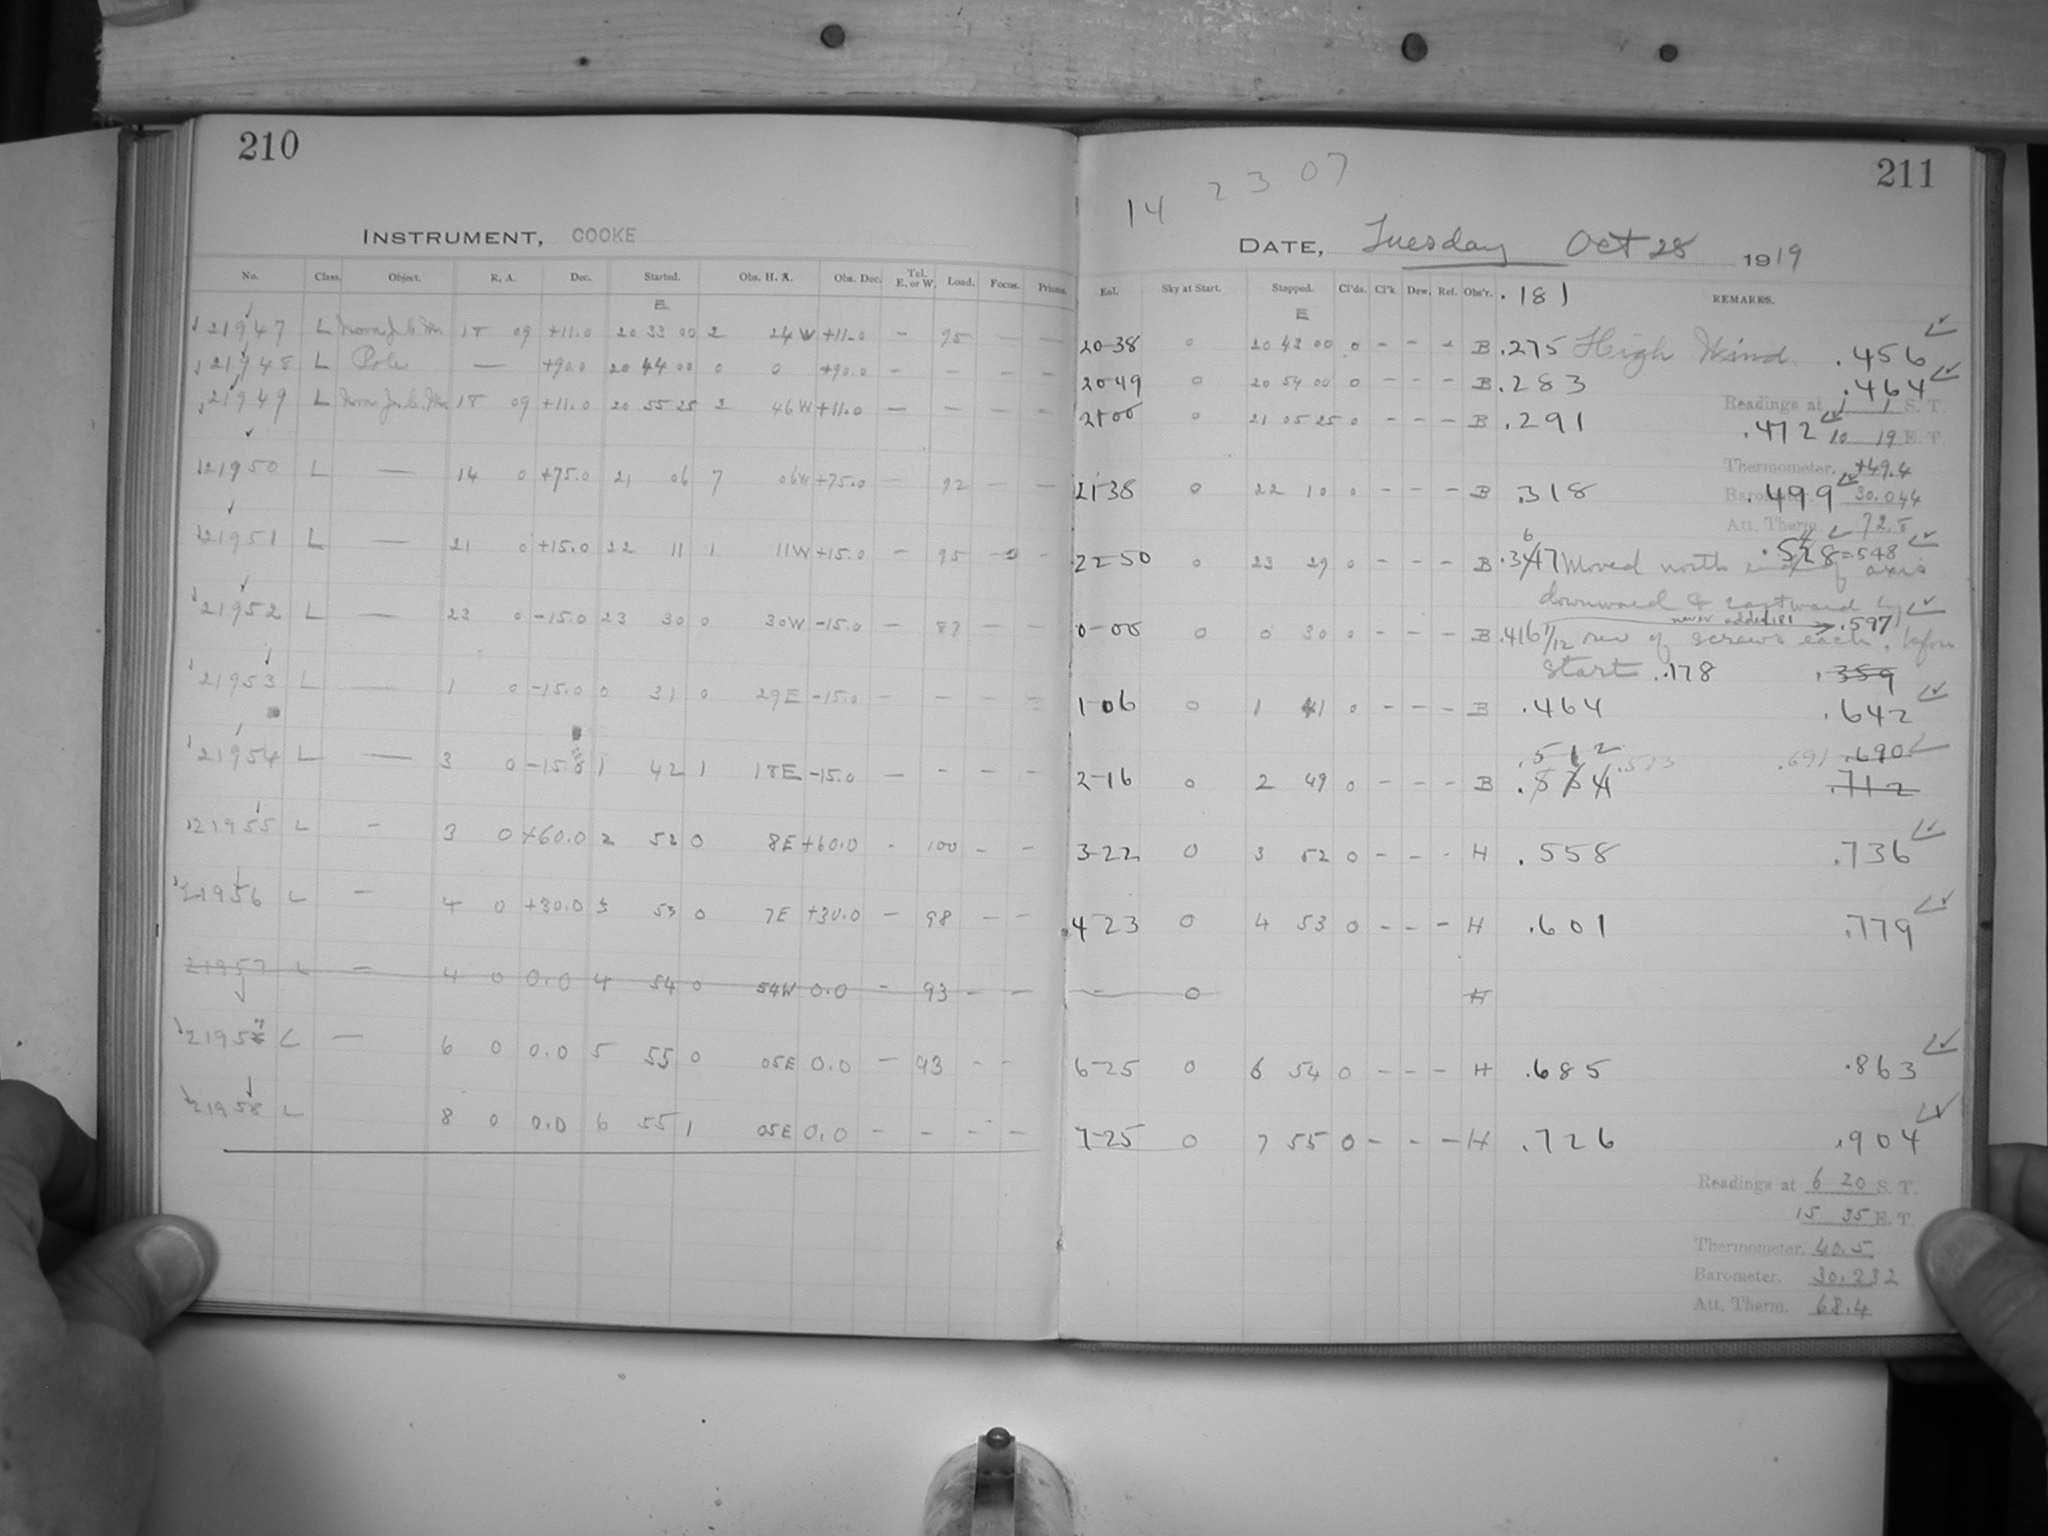 210
INSTRUMENT, COOKE
No. Class. Object. R. A. Dec. Started. Obs. H. A. Obs. Dec. Tel. E. or W. Load. Focus. Prisms.
E
21947 L 18 09 +11.0 20 33 00 2 24 W +11.0 - 95 - -
21948 L Pole — +90.0 20 44 00 0 0 +90.0 - - - -
21949 L 18 09 +11.0 20 55 25 2 46 W +11.0 - - - -
21950 L — 14 0 +75.0 21 06 7 06W +75.0 - 92 - -
21951 L — 21 0 +15.0 22 11 1 11W +15.0 - 95 - -
21952 L — 23 0 -15.0 23 30 0 30W -15.0 - 87 - -
21953 L — 1 0 -15.0 0 31 0 29E -15.0 - - - -
21954 L — 3 0 -15.0 1 42 1 18E -15.0 - - - -
21955 L - 3 0 +60.0 2 52 0 8E +60.0 - 100 - -
21956 L - 4 0 +30.0 3 53 0 7E +30.0 - 98 - -
21957 L - 4 0 0.0 4 54 0 54W 0.0 - 93 - -
21957 L — 6 0 0.0 5 55 0 05E 0.0 - 93 - -
21958 L 8 0 0.0 6 55 1 05E 0.0 - - - -
211
14 2 3 07
DATE, Tuesday Oct 28 1919
Sky at Start. Stopped. Cl'ds. Cl'k. Dew. Ref. Obs'r. .181 REMARKS.
E
20-38 0 20 43 00 0 - - - B .275 High Wind. .456
20-49 0 20 54 00 0 - - - B .283 .464
Readings at 1 1 S. T.
21-00 0 21 05 25 0 - - - B .291 .472 10 19 E. T.
Thermometer, +49.4
21-38 0 22 10 0 - - - B .318 .499 Barometer. 30.044
Att. Therm. 72.8
22-50 0 23 29 0 - - - B .367 Moved north end of axis .528 = .548
downward & eastward by
never added 181 → .597
0-00 0 0 30 0 - - - B .416 1/12 rev of screws each, before
start .178 .359
1-06 0 1 41 0 - - - B .464 .642
.512 .513 .691 .690
2-16 0 2 49 0 - - - B .534 .712
3-22 0 3 52 0 - - - H .558 .736
4-23 0 4 53 0 - - - H .601 .779
- 0 H
6-25 0 6 54 0 - - - H .685 .863
7-25 0 7 55 0 - - - H .726 .904
Readings at 6 20 S. T.
15 35 E. T.
Thermometer, 40.5
Barometer. 30.232
Att. Therm. 68.4